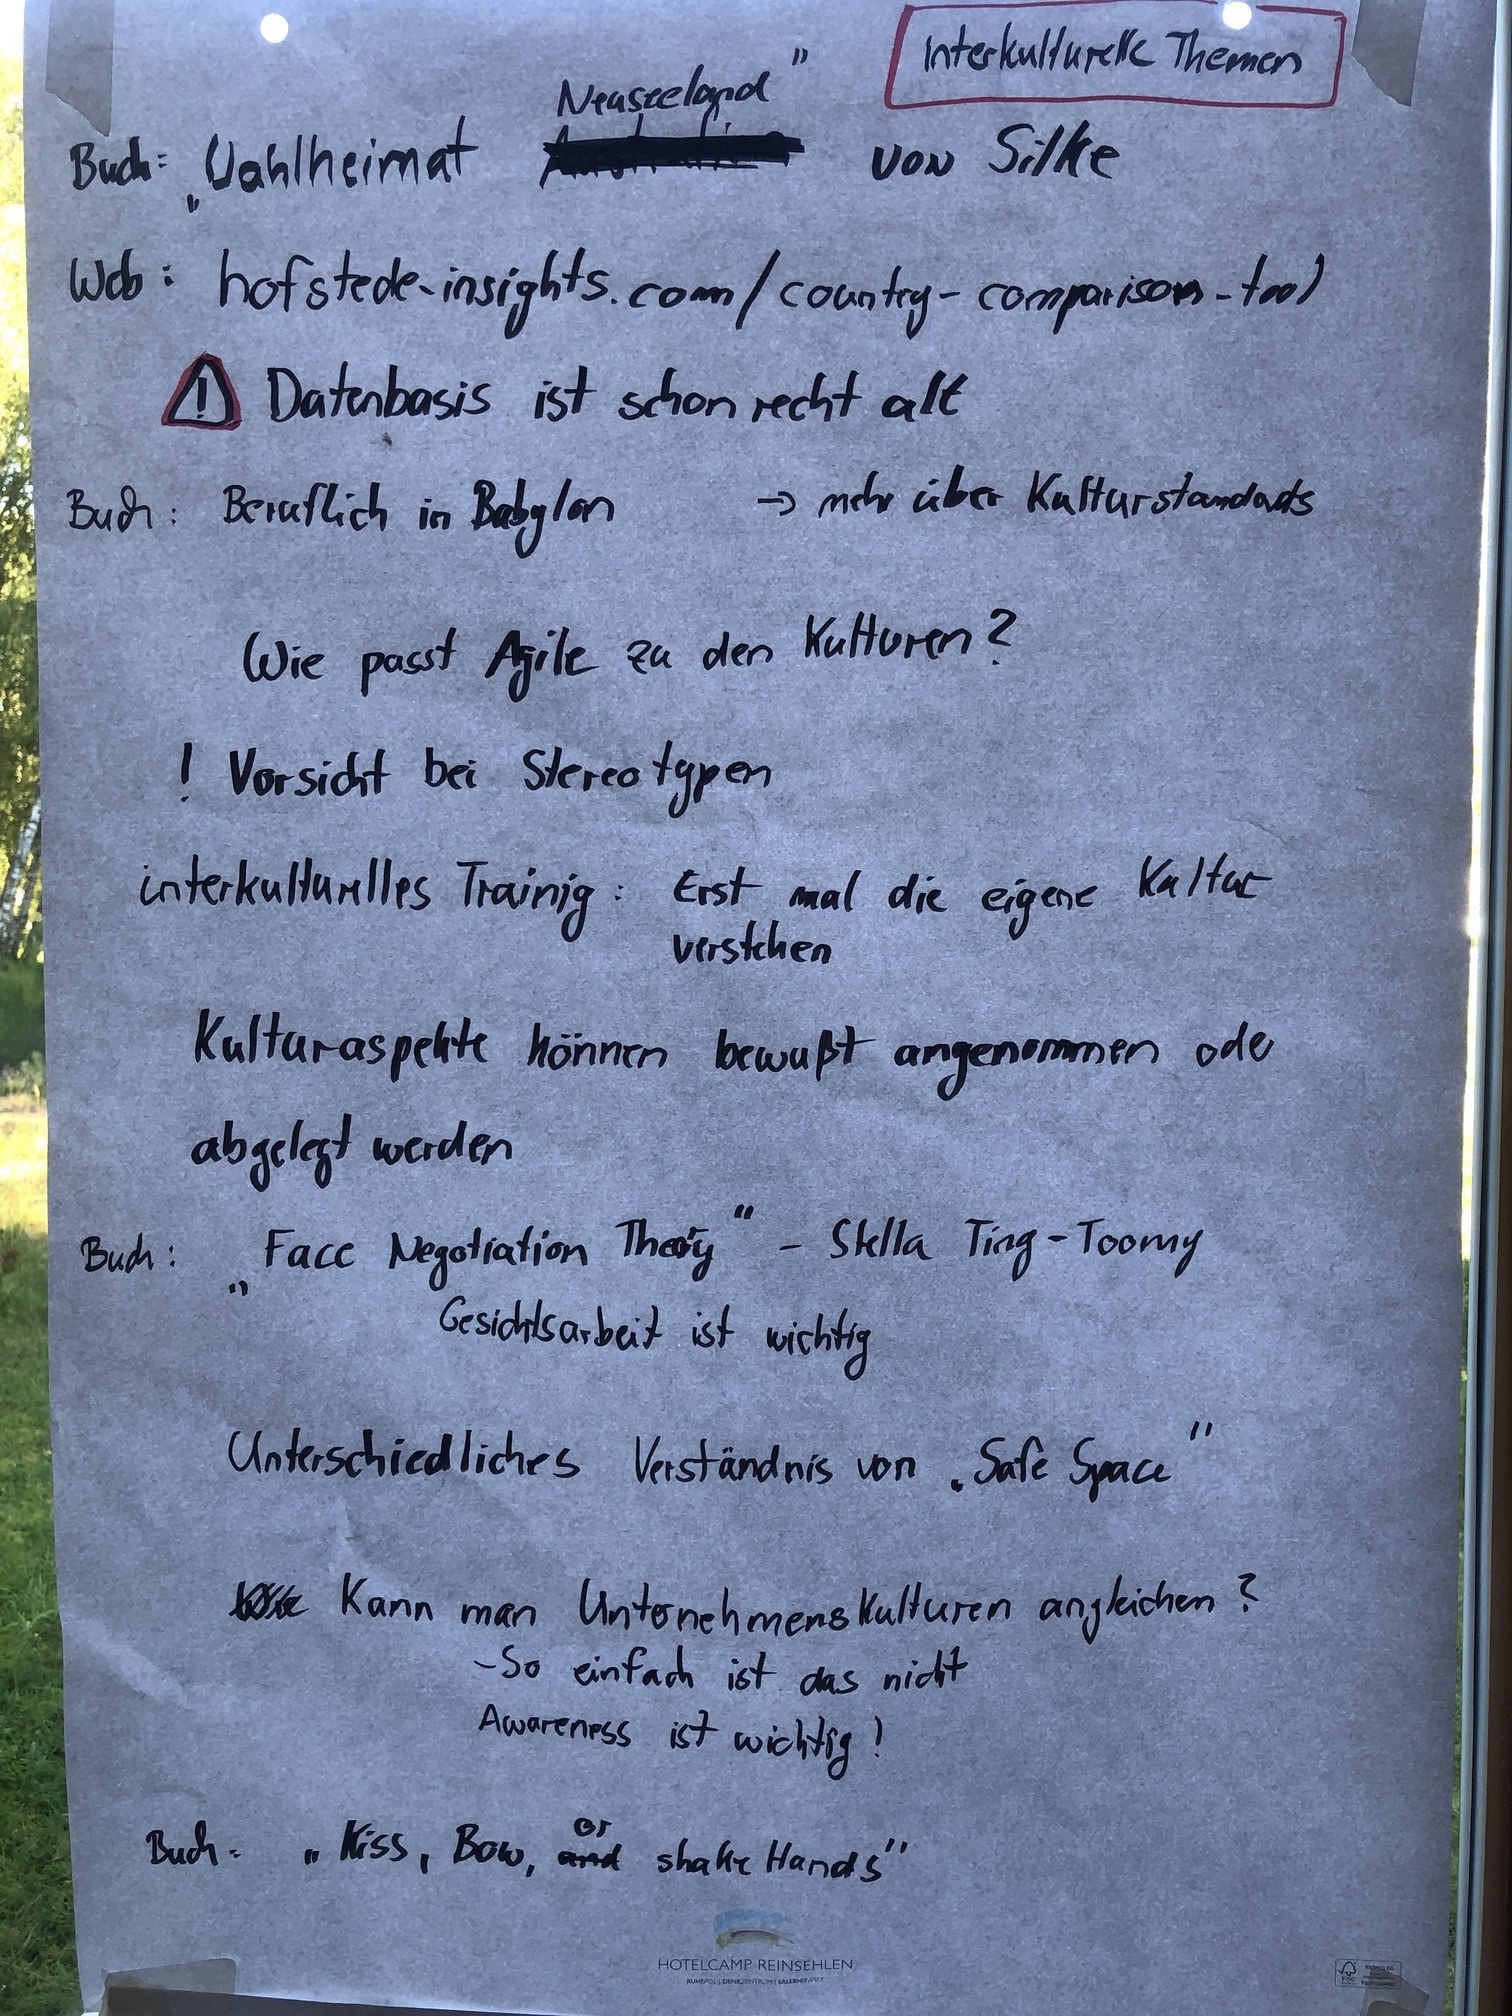 Interkulturelle Themen
Neuseeland"
Buch: „Wahlheimat von Silke
Web: hofstede-insights.com/country-comparison-tool
! Datenbasis ist schon recht alt
Buch: Beruflich in Babylon → mehr über Kulturstandards
Wie passt Agile zu den Kulturen?
! Vorsicht bei Stereotypen
interkulturelles Trainig: Erst mal die eigene Kultur
verstehen
Kulturaspekte können bewußt angenommen oder
abgelegt werden
Buch: „Face Negotiation Theory" - Stella Ting-Toomy
Gesichtsarbeit ist wichtig
Unterschiedliches Verständnis von „Safe Space"
Kann man Unternehmenskulturen angleichen?
- So einfach ist das nicht
Awareness ist wichtig!
or
Buch: „Kiss, Bow, and shake Hands"
HOTELCAMP REINSEHLEN
RUHEPOL | DENKZENTRUM | ERLEBNISWELT
FSC